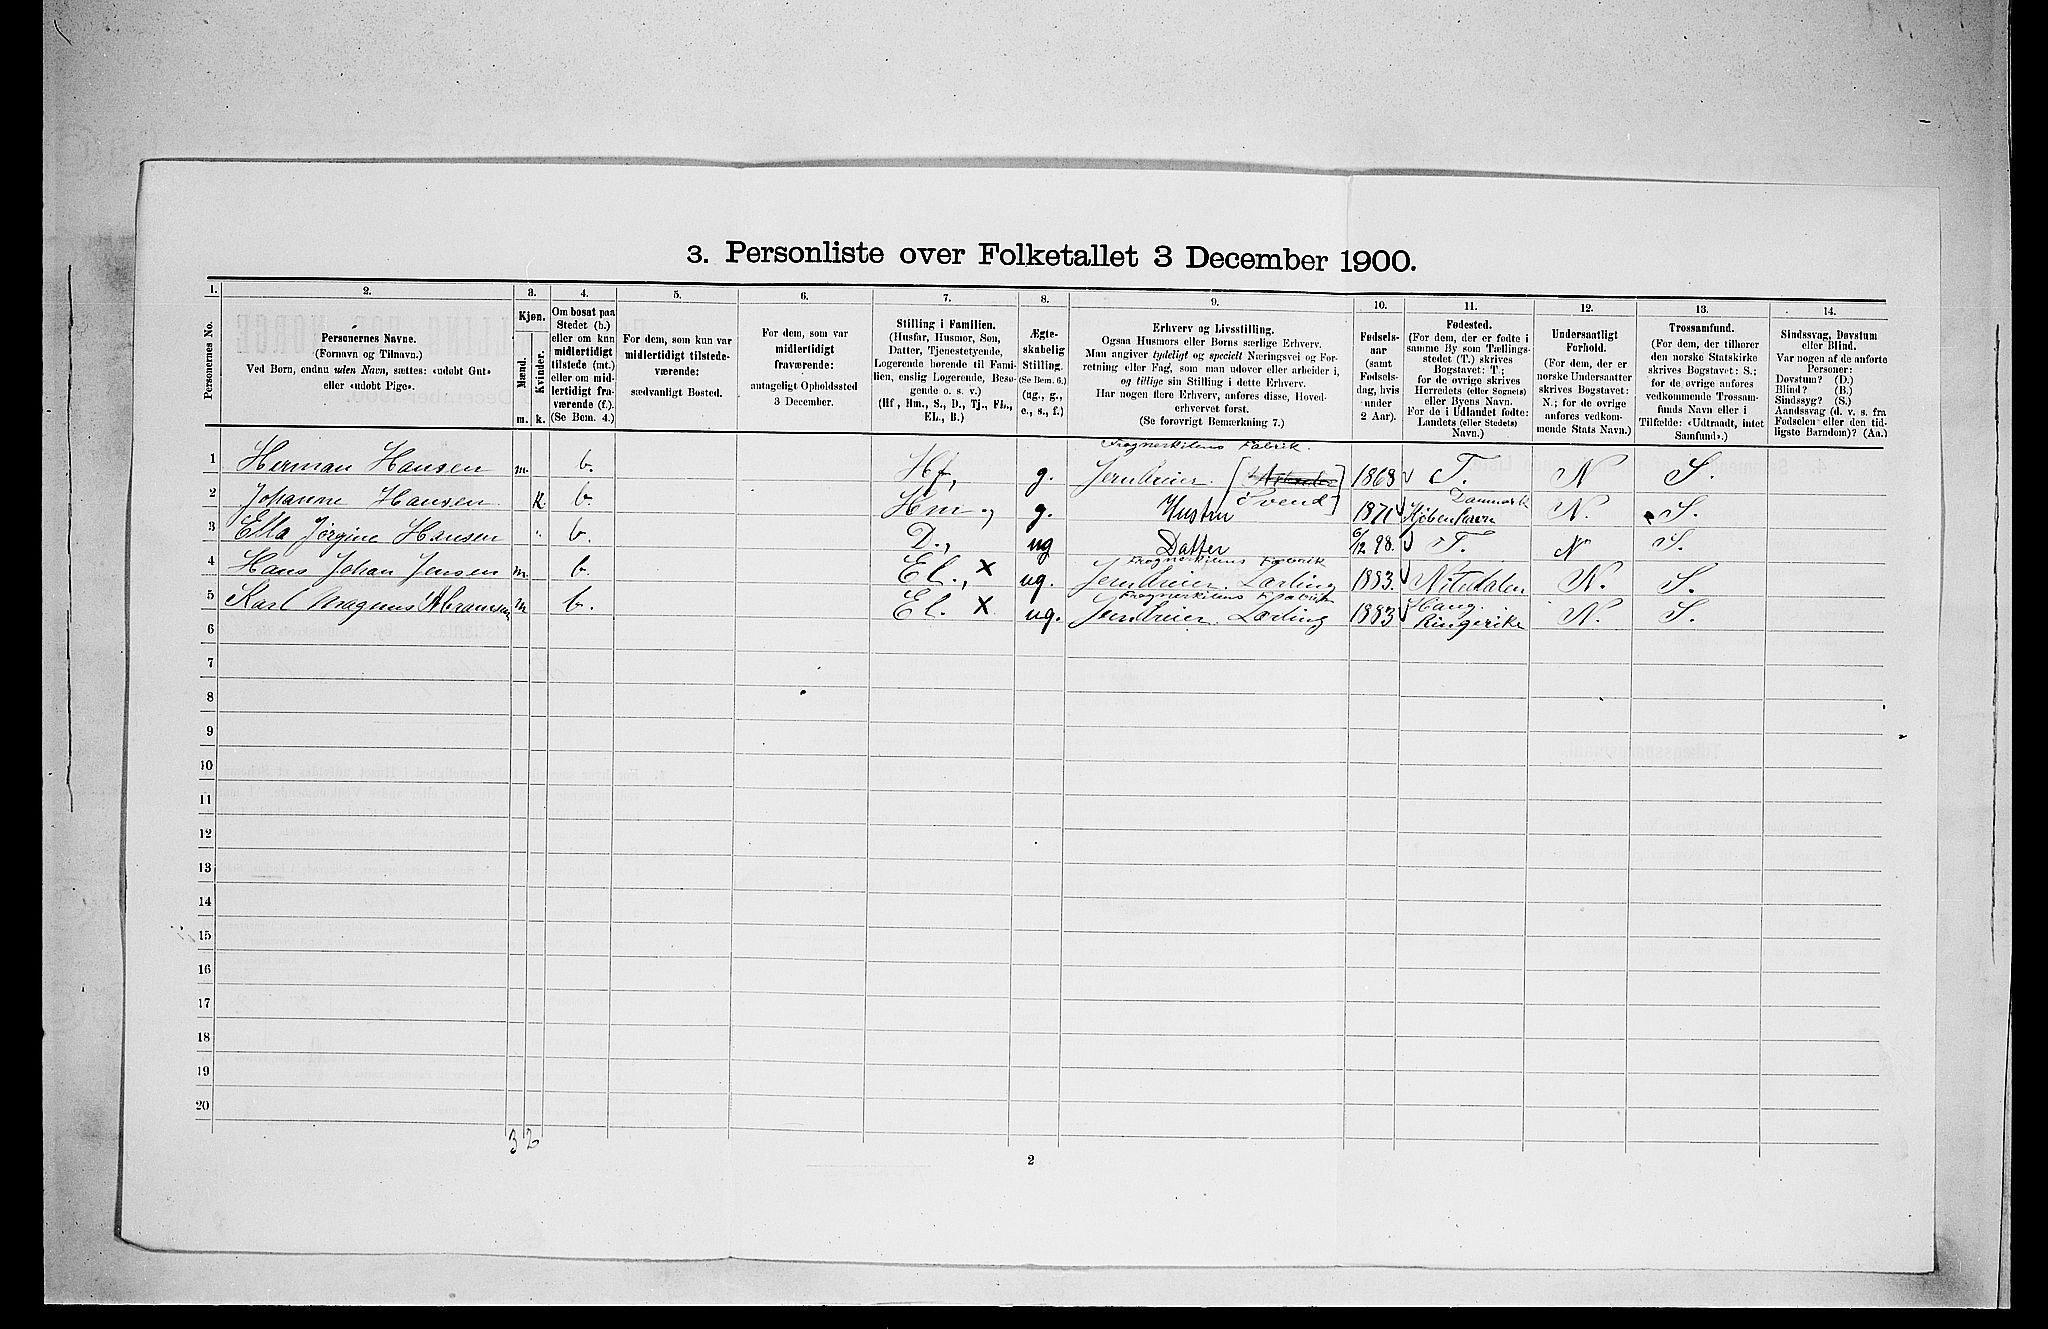 3. Personliste over Folketallet 3 December 1900.
1. 2. 3. 4. 5. 6. 7. 8. 9. 10. 11. 12. 13. 14.
Personernes No.
Personernes Navne.
(Fornavn og Tilnavn.)
Ved Børn, endnu uden Navn, sættes: «udøbt Gut»
eller «udøbt Pige».
Kjøn.
Mænd. Kvinder.
m. k.
Om bosat paa
Stedet (b.)
eller om kun
midlertidigt
tilstede (mt.)
eller om mid-
lertidigt fra-
værende (f.).
(Se Bem. 4.)
For dem, som kun var
midlertidigt tilstede-
værende:
sædvanligt Bosted.
For dem, som var
midlertidigt
fraværende:
antageligt Opholdssted
3 December.
Stilling i Familien.
(Husfar, Husmor, Søn,
Datter, Tjenestetyende,
Logerende hørende til Fami-
lien, enslig Logerende, Besø-
gende o. s. v.)
(Hf, Hm., S., D., Tj., FL.,
EL., B.)
Ægte-
skabelig
Stilling.
(Se Bem. 6.)
(ug., g.,
e., s., f.)
Erhverv og Livsstilling.
Ogsaa Husmors eller Børns særlige Erhverv.
Man angiver tydeligt og specielt Næringsvei og For-
retning eller Fag, som man udøver eller arbeider i,
og tillige sin Stilling i dette Erhverv.
Har nogen flere Erhverv, anføres disse, Hoved-
erhvervet først.
(Se forøvrigt Bemærkning 7.)
Fødsels-
aar
(samt
Fødsels-
dag, hvis
under
2 Aar).
Fødested.
(For dem, der er fødte i
samme By som Tællings-
stedet (T.) skrives
Bogstavet: T.;
for de øvrige skrives
Herredets (eller Sognets)
eller Byens Navn.
For de i Udlandet fødte:
Landets (eller Stedets)
Navn.)
Undersaatligt
Forhold.
(For dem, der er
norske Undersaatter
skrives Bogstavet:
N.; for de øvrige
anføres vedkom-
mende Stats Navn.)
Trossamfund.
(For dem, der tilhører
den norske Statskirke
skrives Bogstavet: S.;
for de øvrige anføres
vedkommende Trossam-
funds Navn eller i
Tilfælde: «Udtraadt, intet
Samfund».)
Sindssvag, Døvstum
eller Blind.
Var nogen af de anførte
Personer:
Døvstum? (D.)
Blind? (B.)
Sindssyg? (S.)
Aandssvag (d. v. s. fra
Fødselen eller den tid-
ligste Barndom)? (Aa.)
Frognerkilens Fabrik.
1 Herman Hansen m. b. Hf, g. Jernbreier 1868 T. N S.
Svend
Danmark
2 Johanne Hansen k b. Hm., g. Hustru 1871 Kjøbenhavn N. S.
3 Ella Jørgine Hansen " b. D., ug Datter 6/12 98. T. N S.
Frognerkilens Fabrik
4 Hans Johan Jensen m. b. El., x ug. Jerndreier. Lærling 1883. Nitedalen N. S.
Frognerkilens Fabrik
Haug.
5 Karl Magnus Abramsen m b. El. x ug. Jerndreier. Lærling 1883 Ringerike N. S.
6
7
8
9
10
11
12
13
14
15
16
17
18
19
20
3 2
2